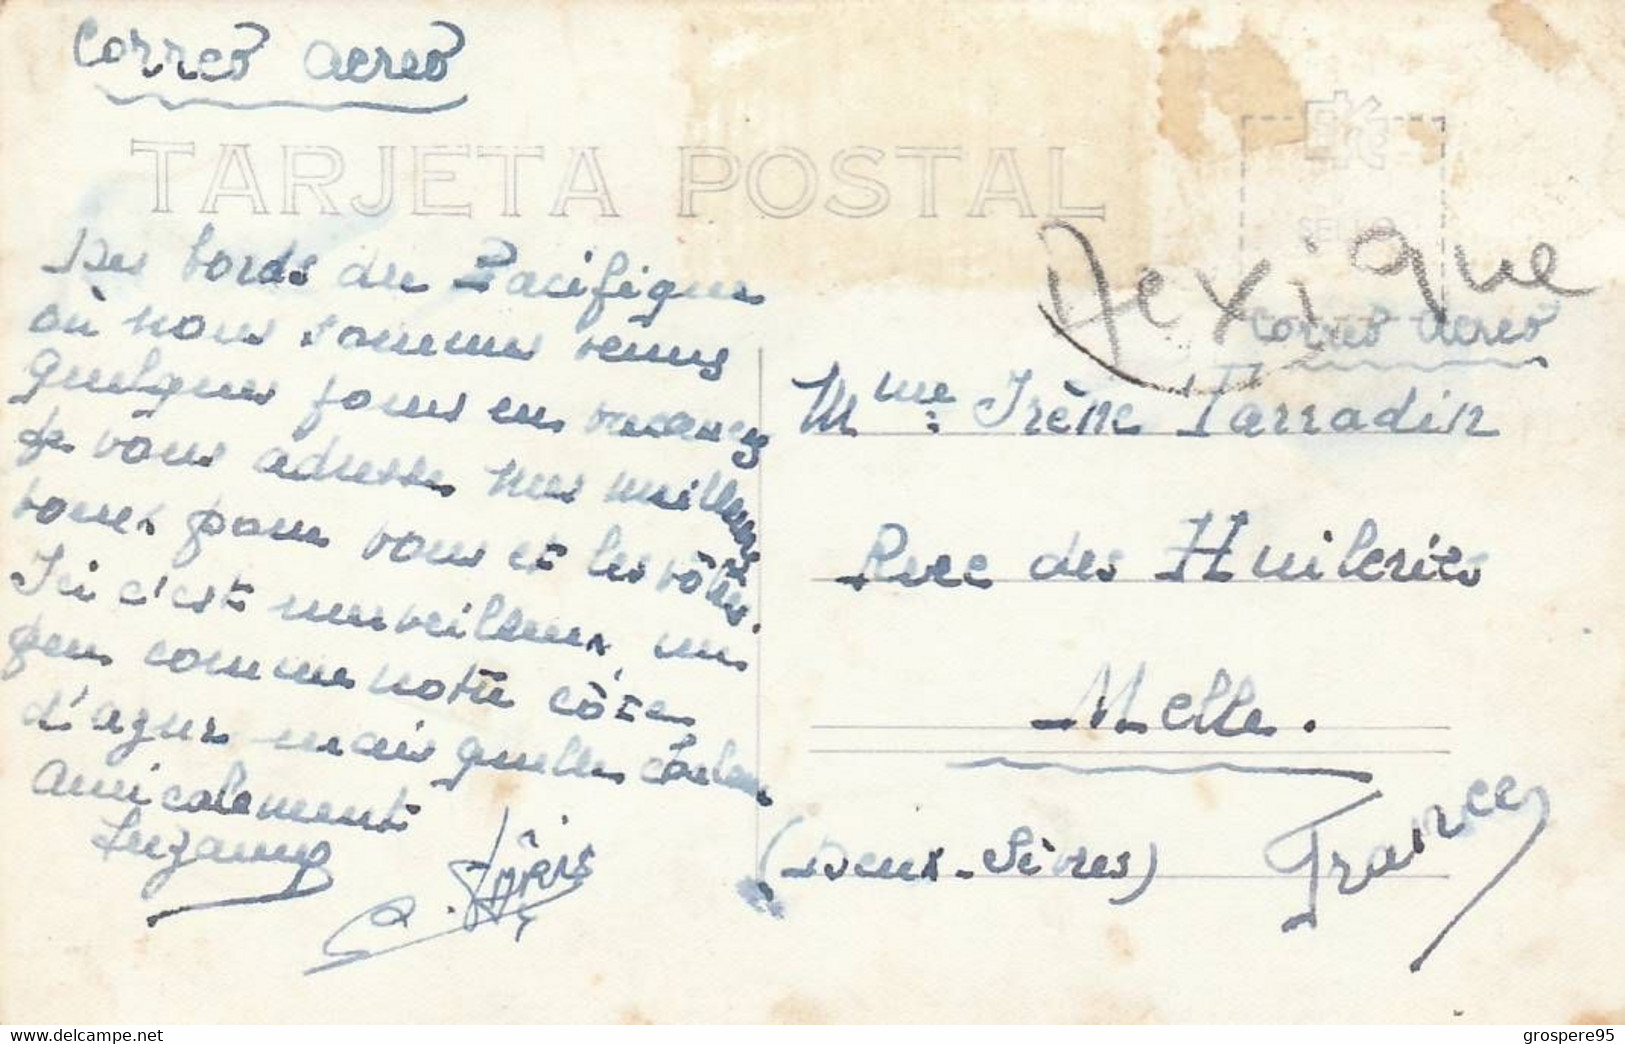 Correo aereo
TARJETA POSTAL
SELLO
Mexique
Correo aereo
Des bords du Pacifique
où nous sommes venus
quelques jours en vacances
je vous adresse nos meilleurs
pour vous et les vôtres.
Ici c'est merveilleux, un
peu comme notre côte
d'azur mais quelle chaleur
Amicalement
Suzanne
Mme Irène Parradin
Rue des Huileries
Melle.
(Deux-Sèvres) France
delcampe.net
grospere95